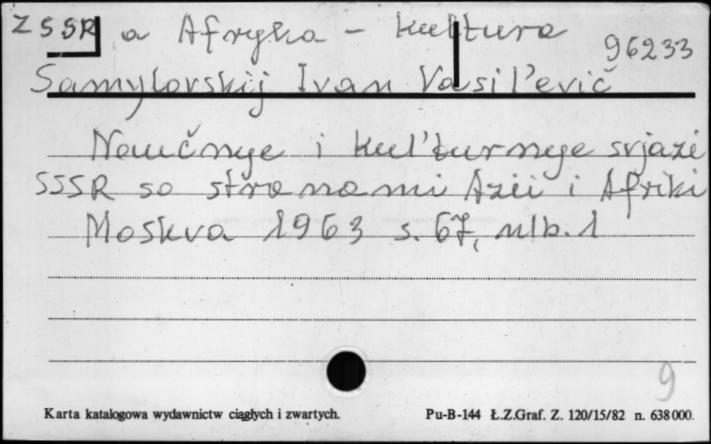 ZSSR a Afryka - kultura
96233
Samylovskij Ivan Vasil'evič
Naučnye i kul'turnye svjazi
SSSR so stranami Azii i Afriki
Moskva 1963 s. 67, nlb. 1
9
Karta katalogowa wydawnictw ciągłych i zwartych. Pu-B-144 Ł.Z.Graf. Z. 120/15/82 n. 638000.